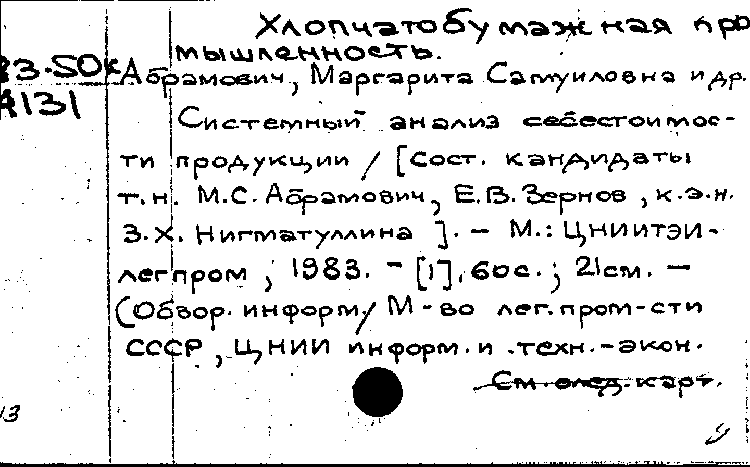 Хлопчатобумажная про
мышленность.
83-SOк Абрамович, Маргарита Самуиловна и др.
А131
Системный анализ себестоимос-
ти продукции / [Сост. кандидаты
т.н. М.С. Абрамович, Е.В. Зернов, к.э.н.
З.Х. Нигматуллина]. - М.: ЦНИИТЭИ-
легпром, 1983. - [1], 60с.; 21см. -
(Обзор. информ./ М-во лег.пром-сти
СССР, ЦНИИ информ. и техн.-экон.
См. след. карт.